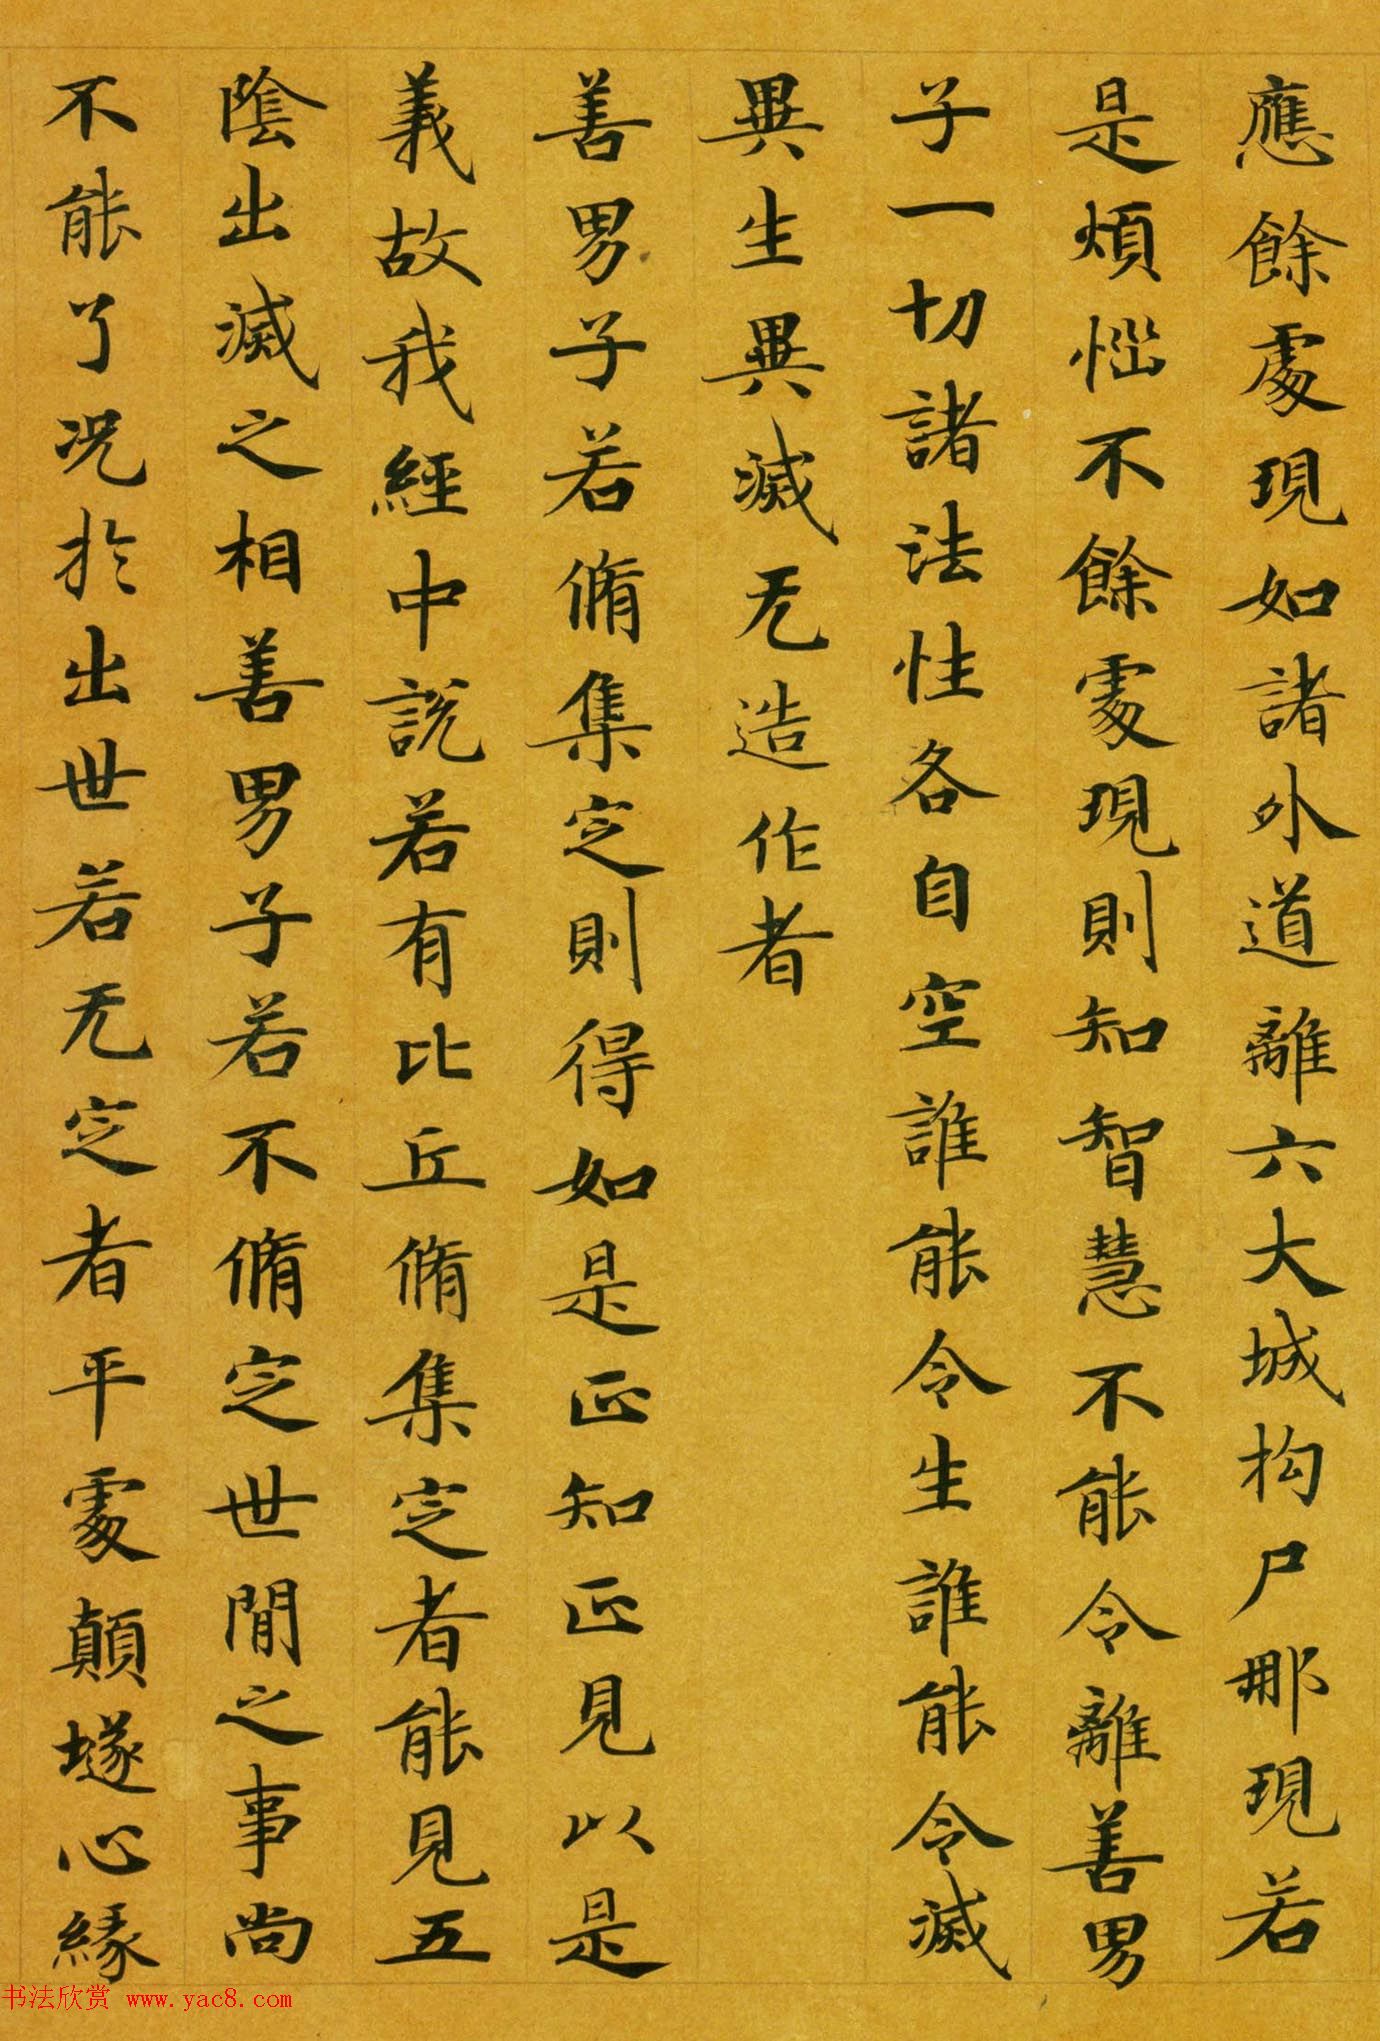 應餘處現如諸外道離六大城构尸那現若
是煩惱不餘處現則知智慧不能令離善男
子一切諸法性各自空誰能令生誰能令滅
異生異滅无造作者
善男子若脩集定則得如是正知正見以是
義故我經中說若有比丘脩集定者能見五
陰出滅之相善男子若不脩定世間之事尚
不能了况於出世若无定者平處顛墜心緣
书法欣赏 www.yac8.com